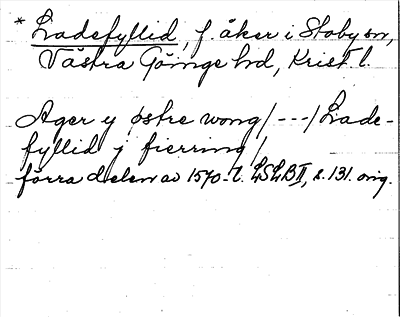 * Ladefyllid, f. åker i Stoby sn,
Västra Göinge hd, Krist. l.
Ager y østre wong/---/Lade-
fyllid j fierring/
förra delen av 1570-t. LSLB II, s. 131. orig.